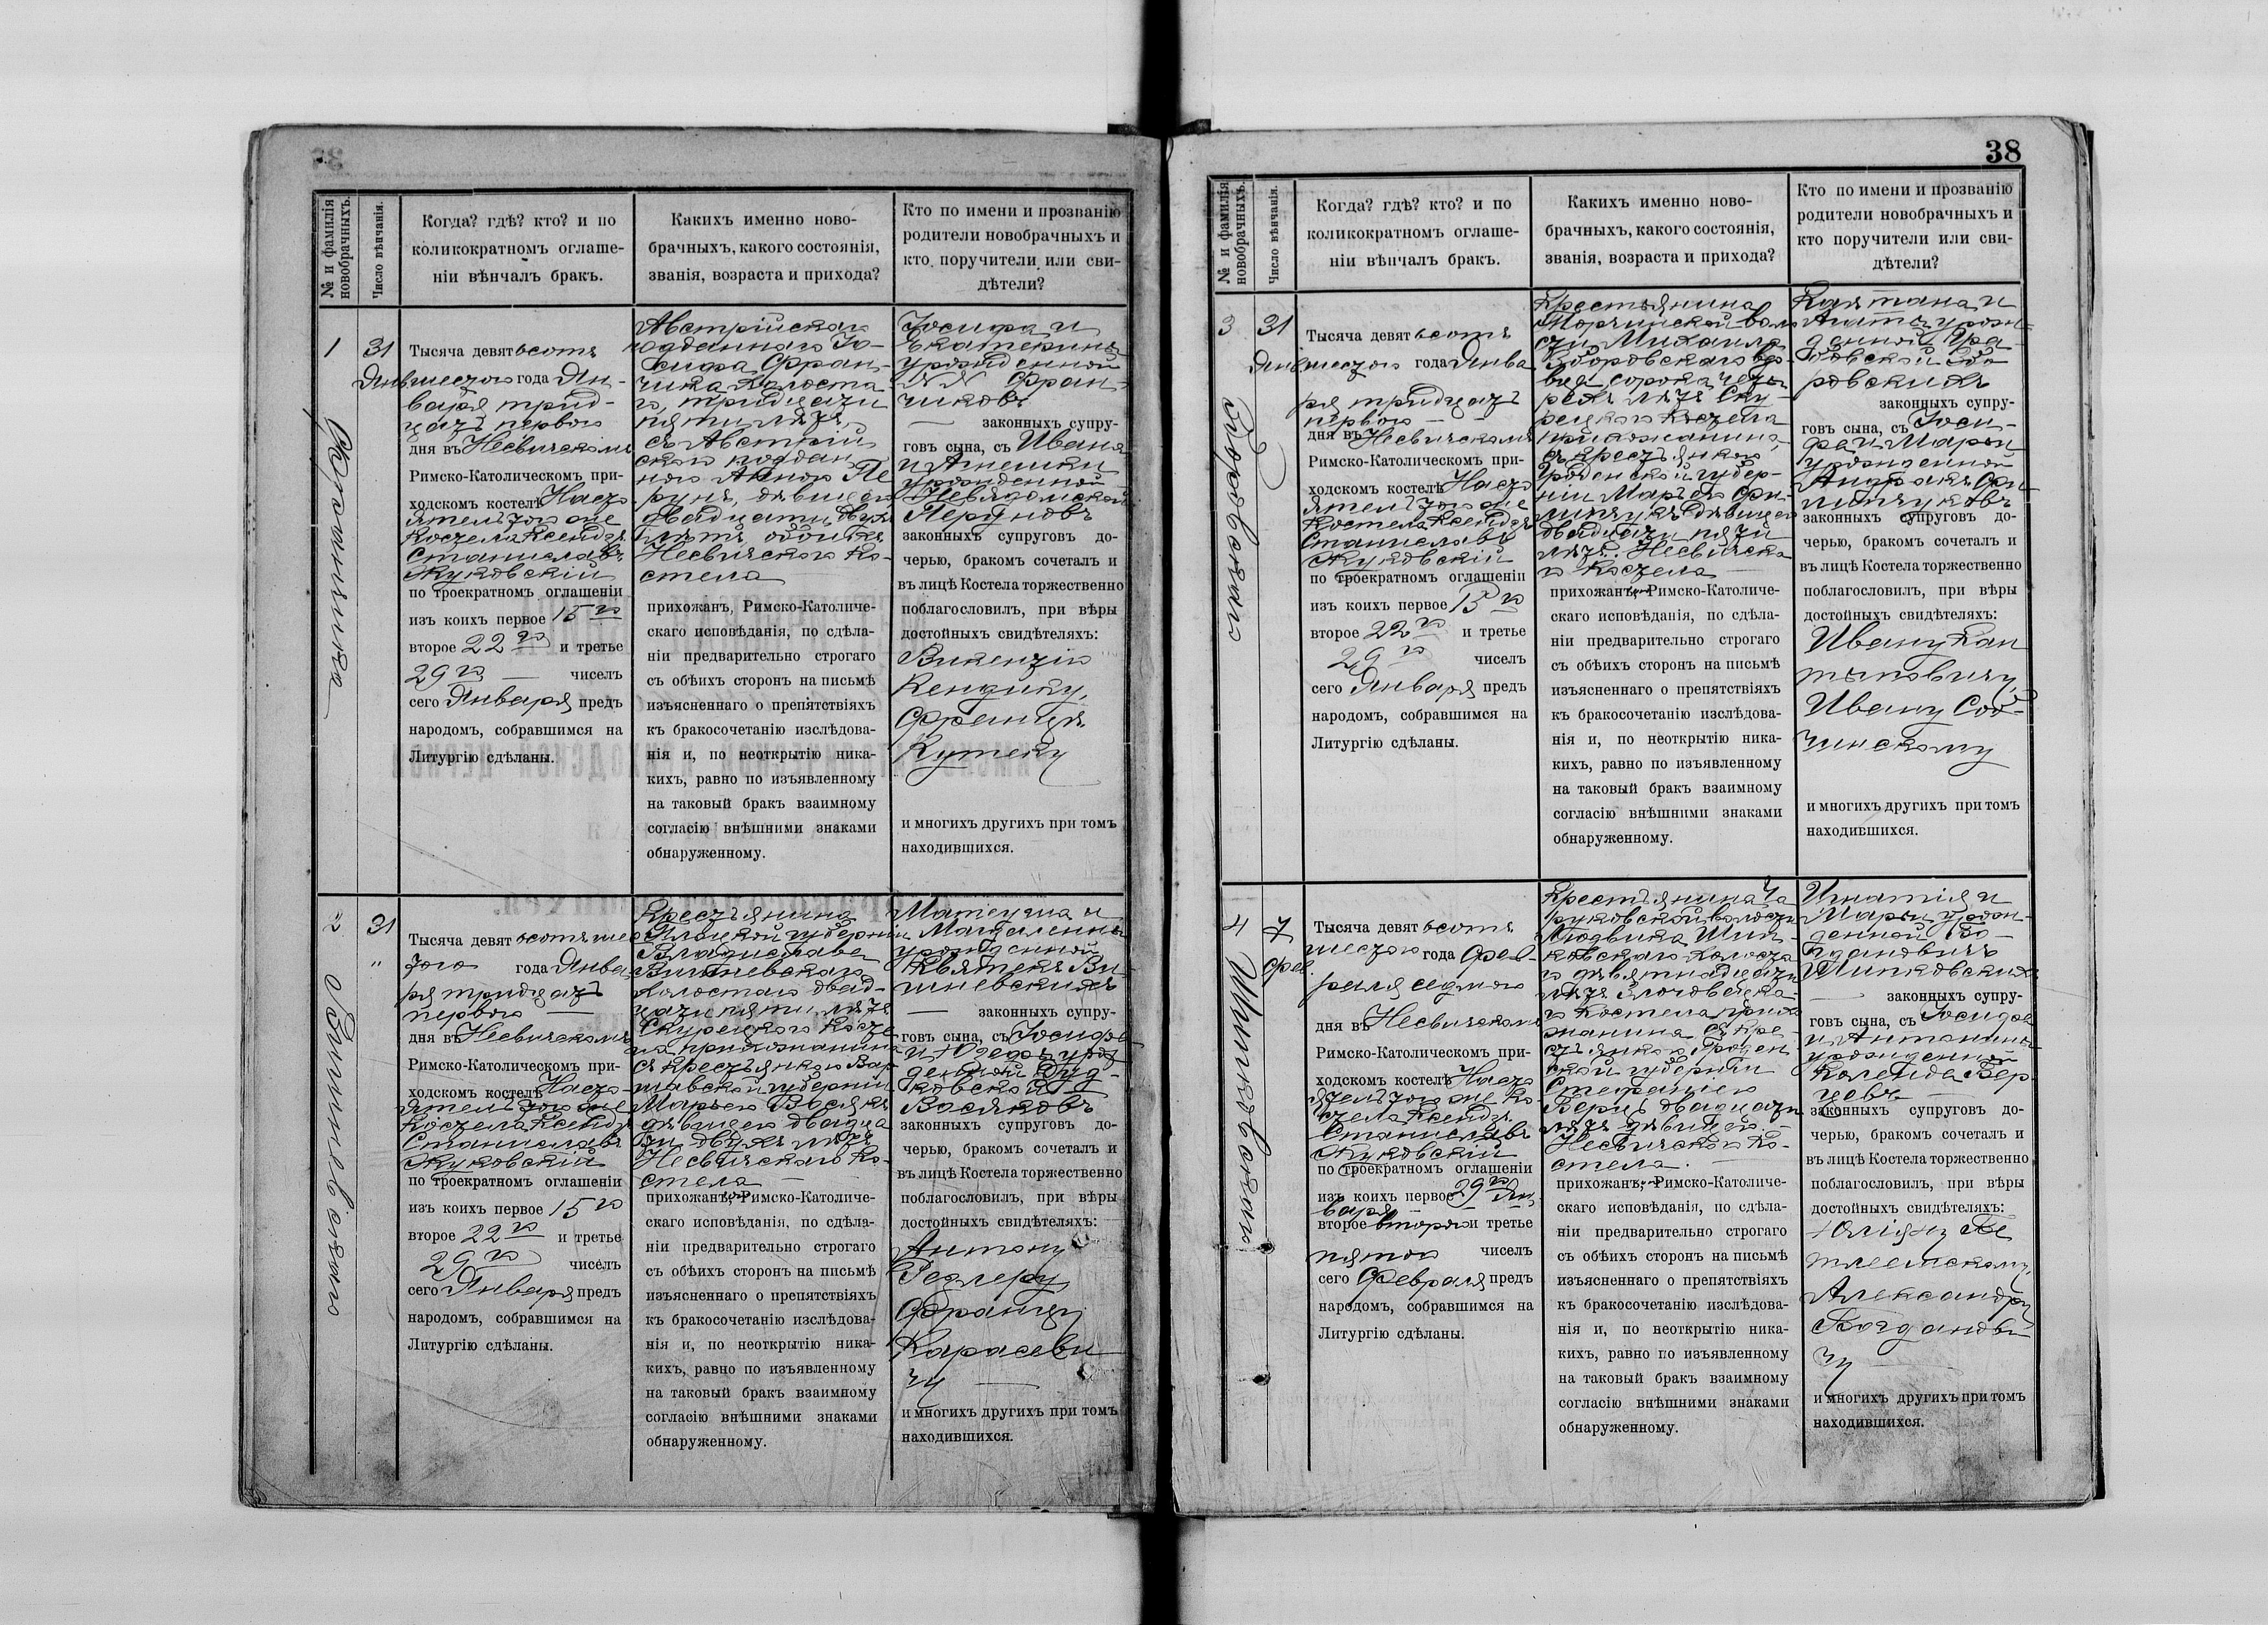 № и фамилія новобрачныхъ.
Число вѣнчанія.
Когда? гдѣ? кто? и по
коликократномъ оглаше-
ніи вѣнчалъ бракъ.
Какихъ именно ново-
брачныхъ, какого состоянія,
званія, возраста и прихода?
Кто по имени и прозванію
родители новобрачныхъ и
кто поручители или сви-
дѣтели?
1
31
Тысяча девятьсотъ
шестого года Ян-
варя трид-
цать первого
дня въ Несвичскомъ
Римско-Католическомъ при-
ходскомъ костелѣ Насто
ятель того же
Костела Ксендзъ
Станиславъ
Жуковскій
по троекратномъ оглашеніи
изъ коихъ первое 15го
второе 22го и третье
29го — чиселъ
сего Января предъ
народомъ, собравшимся на
Литургію сдѣланы.
Австрійскаго
подданнаго Іо-
сифа Фран-
чика холоста
го, тридцати
пяти лѣтъ,
съ Австрій
ского поддан
ного Анною Пе
рунъ, дѣвицею
двадцати двухъ
лѣтъ обоихъ
Несвичскаго Ко-
стела
прихожанъ, Римско-Католиче-
скаго исповѣданія, по сдѣла-
ніи предварительно строгаго
съ обѣихъ сторонъ на письмѣ
изъясненнаго о препятствіяхъ
къ бракосочетанію изслѣдова-
нія и, по неоткрытію ника-
кихъ, равно по изъявленному
на таковый бракъ взаимному
согласію внѣшними знаками
обнаруженному.
Іосифа и
Екатерины
урожденной
NN Фран-
чиковъ
— законныхъ супру-
говъ сына, съ Ивана
и Агнешки
урожденной
Перуновъ
законныхъ супруговъ до-
черью, бракомъ сочеталъ и
въ лицѣ Костела торжественно
поблагословилъ, при вѣры
достойныхъ свидѣтеляхъ:
Викентію
Францу
Кутеку
и многихъ другихъ при томъ
находившихся.
2
31
Вишневскаго
Тысяча девятьсотъ шес
того года Янва
ря тридцать
первого —
дня въ Несвичскомъ
Римско-Католическомъ при-
ходскомъ костелѣ Насто-
ятель того же
Костела Ксендзъ
Станиславъ
Жуковскій
по троекратномъ оглашеніи
изъ коихъ первое 15го
второе 22го и третье
29го чиселъ
сего Января предъ
народомъ, собравшимся на
Литургію сдѣланы.
Крестьянина
Плоцкой губерніи
Владислава
Вишневскаго
холостаго двад-
цати пяти лѣтъ
Скурецкого Косте
ла прихожанина
съ крестьянкою Вар
шавской губерніи
Марьею Восякъ
дѣвицею двадца
ти двухъ лѣтъ
Несвичскаго Ко-
стела —
прихожанъ, Римско-Католиче-
скаго исповѣданія, по сдѣла-
ніи предварительно строгаго
съ обѣихъ сторонъ на письмѣ
изъясненнаго о препятствіяхъ
къ бракосочетанію изслѣдова-
нія и, по неоткрытію ника-
кихъ, равно по изъявленному
на таковый бракъ взаимному
согласію внѣшними знаками
обнаруженному.
и Магдалены
урожденной
Квятекъ Ви-
шневскихъ
— законныхъ супру-
говъ сына, съ Іосифа
и Юзефы урож
денной
Восяковъ
законныхъ супруговъ до-
черью, бракомъ сочеталъ и
въ лицѣ Костела торжественно
поблагословилъ, при вѣры
достойныхъ свидѣтеляхъ:
Антону
Францу
Карасеви
чу —
и многихъ другихъ при томъ
находившихся.
38
№ и фамилія новобрачныхъ.
Число вѣнчанія.
Когда? гдѣ? кто? и по
коликократномъ оглаше-
ніи вѣнчалъ бракъ.
Какихъ именно ново-
брачныхъ, какого состоянія,
званія, возраста и прихода?
Кто по имени и прозванію
родители новобрачныхъ и
кто поручители или сви-
дѣтели?
3
31
Тысяча девятьсотъ
шестого года Янва
ря тридцать
первого —
дня въ Несвичскомъ
Римско-Католическомъ при-
ходскомъ костелѣ Насто
ятель того же
Костела Ксендзъ
Станиславъ
Жуковскій
по троекратномъ оглашеніи
изъ коихъ первое 15го
второе 22го и третье
29го чиселъ
сего Января предъ
народомъ, собравшимся на
Литургію сдѣланы.
Крестьянина
Торчинской воло
сти Михаила
вдо
вца, сорока четы
рехъ лѣтъ Ску-
рецкого Костела
прихожанина,
съ крестьянкою
Гродненской губер-
ніи Марьею Фи-
липчукъ дѣвицею
двадцати пяти
лѣтъ. Несвичска
го Костела —
прихожанъ, Римско-Католиче-
скаго исповѣданія, по сдѣла-
ніи предварительно строгаго
съ обѣихъ сторонъ на письмѣ
изъясненнаго о препятствіяхъ
къ бракосочетанію изслѣдова-
нія и, по неоткрытію ника-
кихъ, равно по изъявленному
на таковый бракъ взаимному
согласію внѣшними знаками
обнаруженному.
Каэтана и
урож-
денной
законныхъ супру-
говъ сына, съ Іоси-
фа и Марьи
урожденной
Фи
липчуковъ
законныхъ супруговъ до-
черью, бракомъ сочеталъ и
въ лицѣ Костела торжественно
поблагословилъ, при вѣры
достойныхъ свидѣтеляхъ:
Ивану
Ивану Соб-
чинскому
и многихъ другихъ при томъ
находившихся.
4
7
Фев
Шипковскаго
Тысяча девятьсотъ
шестого года Фев-
раля седмого
дня въ Несвичскомъ
Римско-Католическомъ при-
ходскомъ костелѣ Насто
ятель того же Ко-
стела Ксендзъ
Станиславъ
Жуковскій
по троекратномъ оглашеніи
изъ коихъ первое 29го Ян
варя
второе второго и третье
пятого чиселъ
сего Февраля предъ
народомъ, собравшимся на
Литургію сдѣланы.
Крестьянина Ча
руковской волости
Людвика Шип-
ковскаго холоста
го девятнадцати
лѣтъ
го костела прихо
жанина съ кре-
стьянкою Гроднен
ской губерніи
Стефаніею
двадцати
лѣтъ дѣвицею. —
Несвичскаго Ко-
стела. —
прихожанъ, Римско-Католиче-
скаго исповѣданія, по сдѣла-
ніи предварительно строгаго
съ обѣихъ сторонъ на письмѣ
изъясненнаго о препятствіяхъ
къ бракосочетанію изслѣдова-
нія и, по неоткрытію ника-
кихъ, равно по изъявленному
на таковый бракъ взаимному
согласію внѣшними знаками
обнаруженному.
Игнатія и
Марьи урож-
денной Бо-
гдановичъ
Шипковскихъ
— законныхъ супру-
говъ сына, съ Іосифа
и Антонины
урожденной
Коленда
законныхъ супруговъ до-
черью, бракомъ сочеталъ и
въ лицѣ Костела торжественно
поблагословилъ, при вѣры
достойныхъ свидѣтеляхъ:
Юліану
Александру
Богданови
чу
и многихъ другихъ при томъ
находившихся.